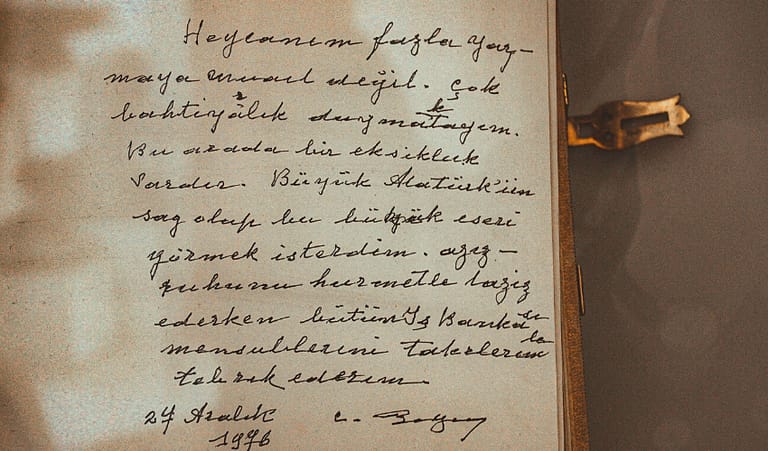 Heycanım fazla yaz-
maya müsait değil. Çok
bahtiyarlık duymaktayım.
Bu arada bir eksikluk
vardır. Büyük Atatürk'ün
sag olup bu büyük eseri
görmek isterdim. aziz-
ruhunu hurmetle taziz
ederken bütün İş Bankası
mensublerini takdirlerimle
tebrik ederim.
24 Aralık C. Bayar
1976